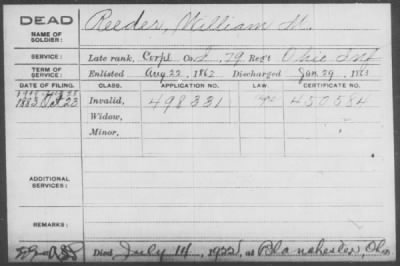 DEAD
NAME OF SOLDIER:
Reeder, William M.
SERVICE:
Late rank, Corpl Co. I, 79 Reg't Ohio Inf
TERM OF SERVICE:
Enlisted Aug 22, 1862 Discharged Jan 29, 1863
DATE OF FILING. CLASS. APPLICATION NO. LAW. CERTIFICATE NO.
1883 Oct 23 Invalid, 498331 450584
Widow,
Minor,
ADDITIONAL SERVICES:
REMARKS:
Died July 14, 1922, at Blanchester, Ohio